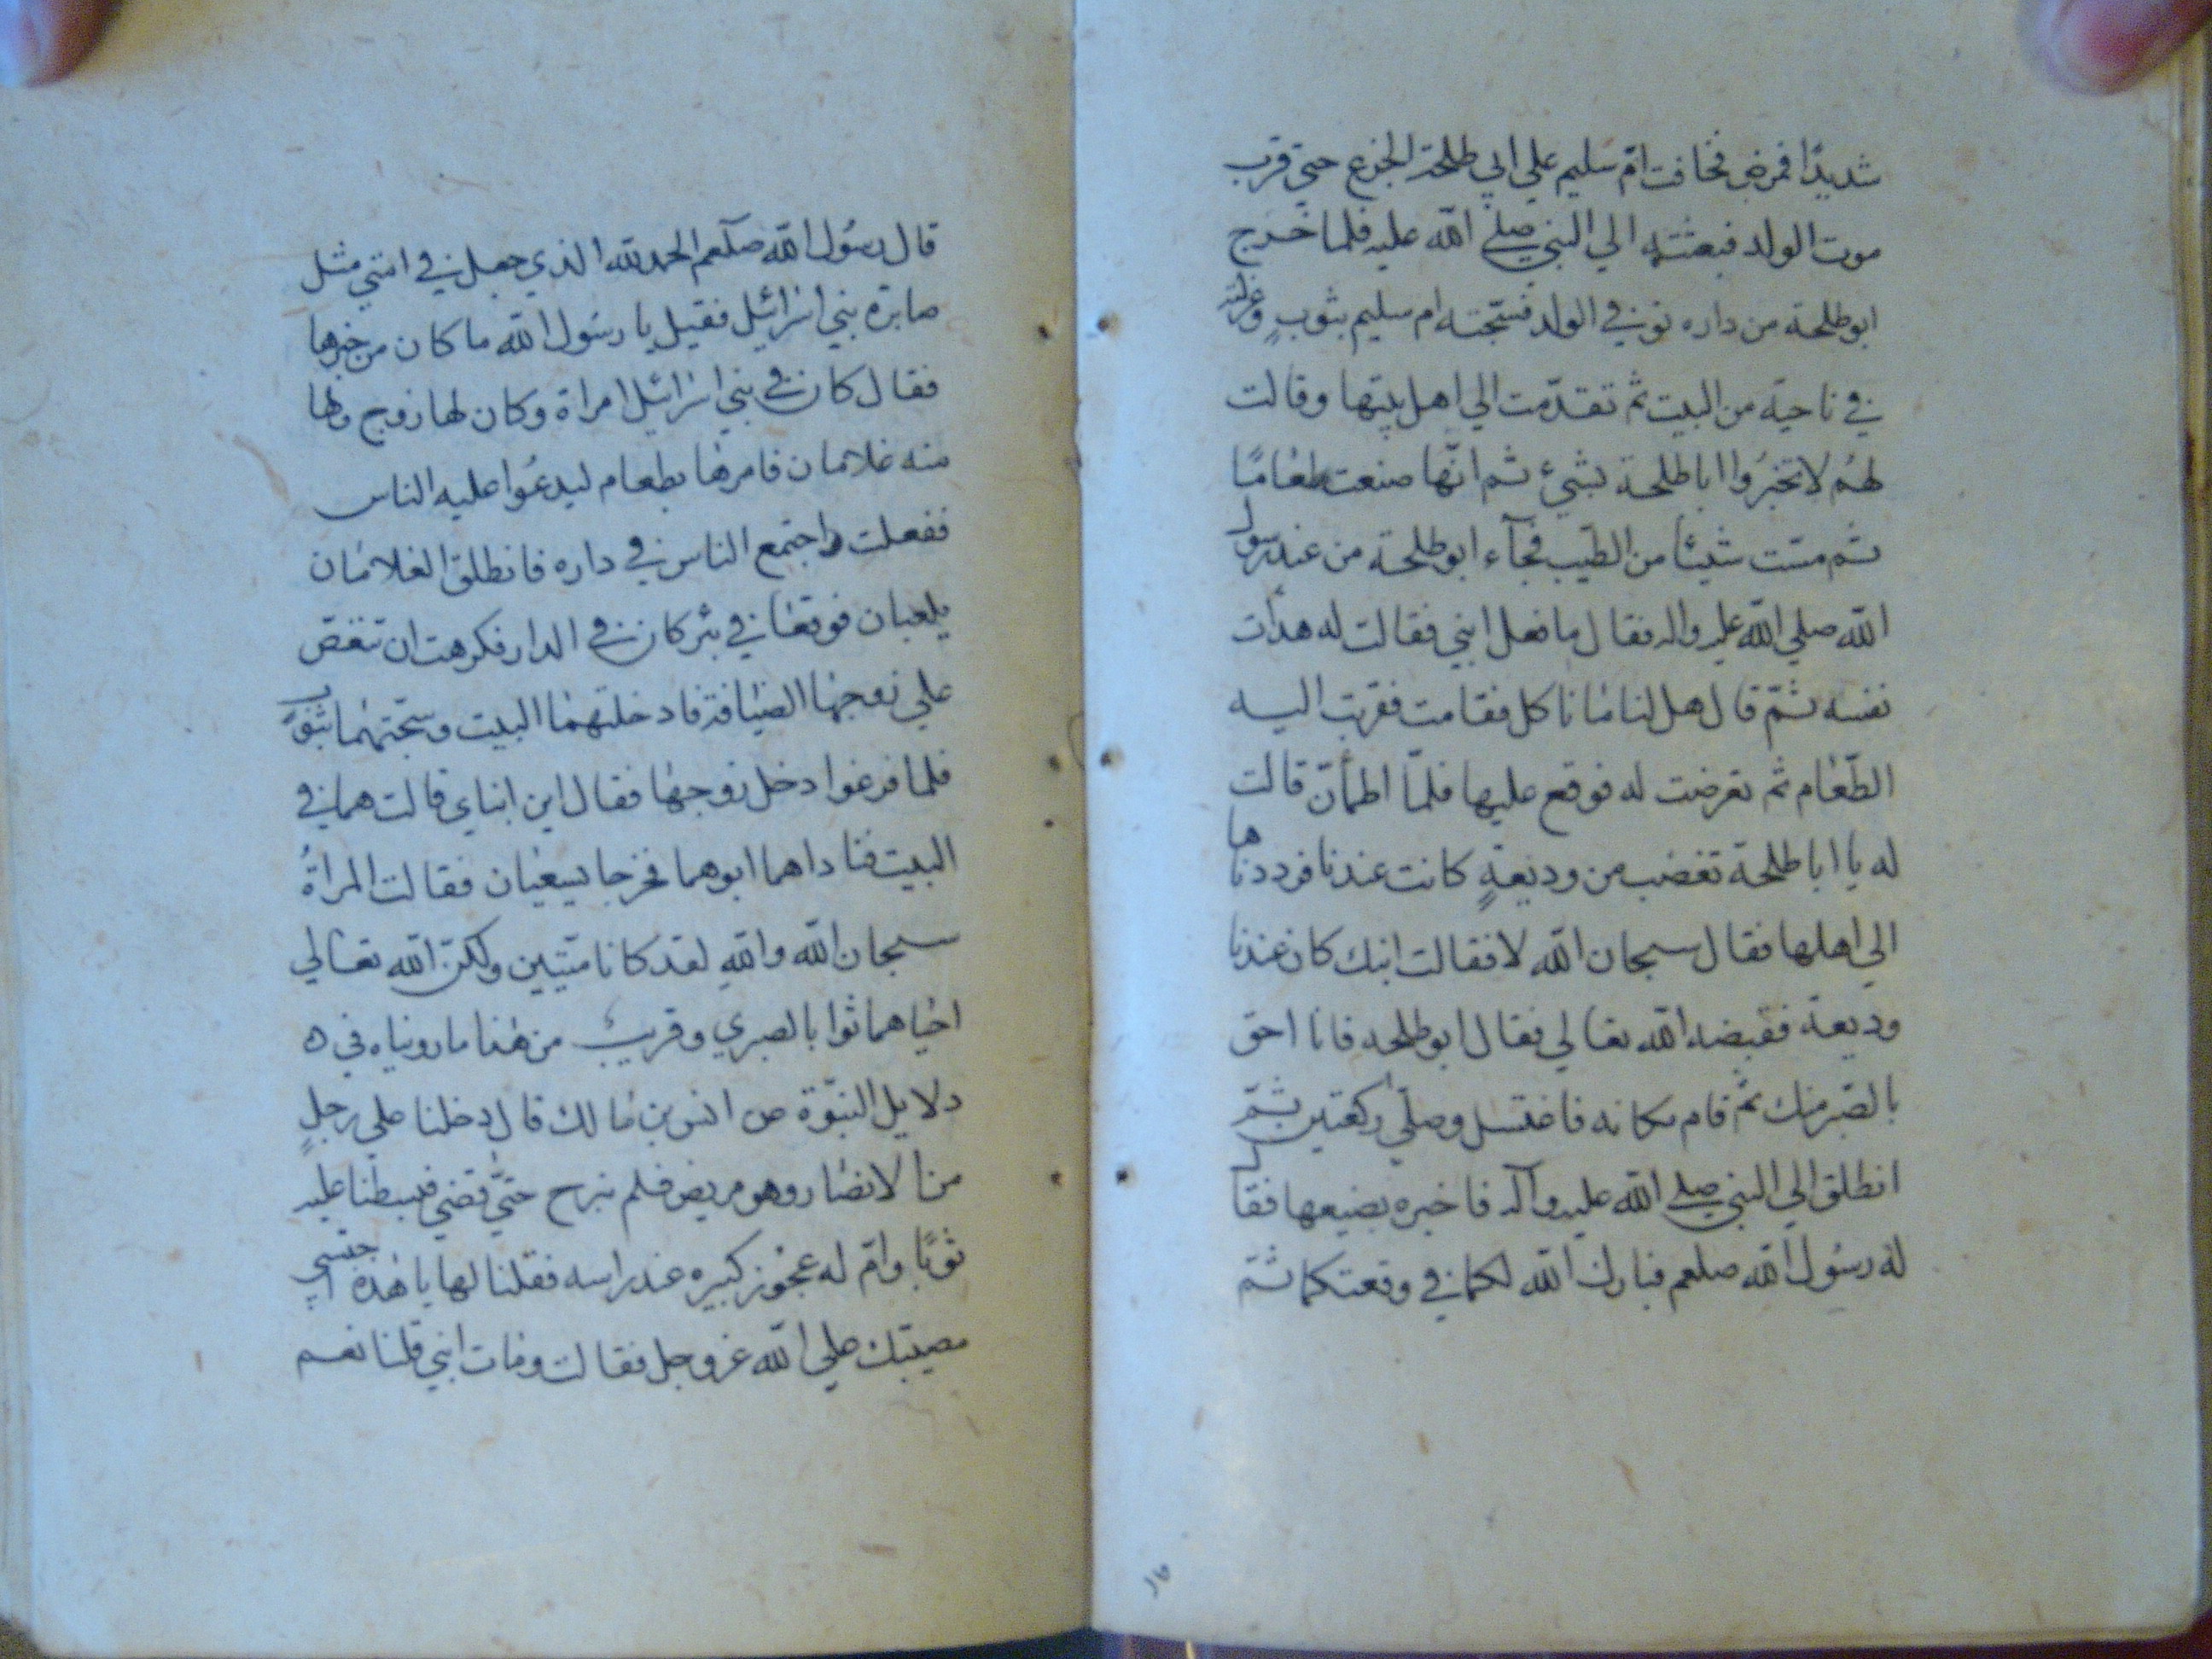 شديدًا فمرض فخافت امّ سليم علي ابي طلحة الجزع حتي قرب
موت الولد فبعثته الي النبي صلي الله عليه فلما خرج
ابوطلحة من داره توفي الولد فسجّته ام سليم بثوبٍ وعزلته
في ناحية من البيت ثم تقدّمت الي اهل بيتها وقالت
لهُم لا تخبرُوا اباطلحة بشيء ثم انّها صنعت طعامًا
ثم مسّت شيئا من الطيب فجآء ابوطلحة من عند رسول
الله صلي الله عليه واله فقال ما فعل ابني فقالت له هدات
نفسه ثمّ قال هل لنا ما ناكل فقامت فقرّبت اليه
الطّعام ثم تعرضت له فوقع عليها فلمّا اطمأنّ قالت
له يا اباطلحة تغضب من وديعةٍ كانت عندنا فرددناها
الي اهلها فقال سبحان الله لا فقالت ابنك كان عندنا
وديعة فقبضه الله تعالي فقال ابوطلحه فانا احق
بالصّبر منك ثمّ قام مكانه فاغتسل وصلّي ركعتين ثمّ
انطلق الي النبي صلي الله عليه وآله فاخبره بصنيعها فقال
له رسُول الله صلعم فبارك الله لكما في وقعتكما ثمّ
قال رسُول الله صلعم الحمد لله الذي جعل في امتي مثل
صابرة بني اسرائيل فقيل يا رسُول الله ما كان من خبرها
فقال كان في بني اسرائيل امراة وكان لها زوج ولها
منه غلامان فامرها بطعام ليدعُوا عليه الناس
ففعلت واجتمع الناس في داره فانطلق الغلامان
يلعبان فوقعا في بئر كان في الدار فكرهت ان تنغص
علي زوجها الضيافة فادخلتهما البيت وسجّتهما بثوب
فلما فرغوا دخل زوجها فقال اين ابناي قالت هما في
البيت فناداهما ابوهما فخرجا يسعيان فقالت المراةُ
سبحان الله والله لقد كانا ميّتين ولكنّ الله تعالي
احياهما ثوابا لصبري وقريب من هذا ما رويناه في ه
دلايل النبوّة عن انس بن مالك قال دخلنا علي رجلٍ
من الانصار وهو مريض فلم نبرح حتّي قضي فبسطنا عليه
ثوبًا وامّ له عجُوز كبيره عند راسه فقلنا لها يا هذه احتسبي
مصيبتك علي الله عز وجل فقالت ومات ابني قلنا نعم